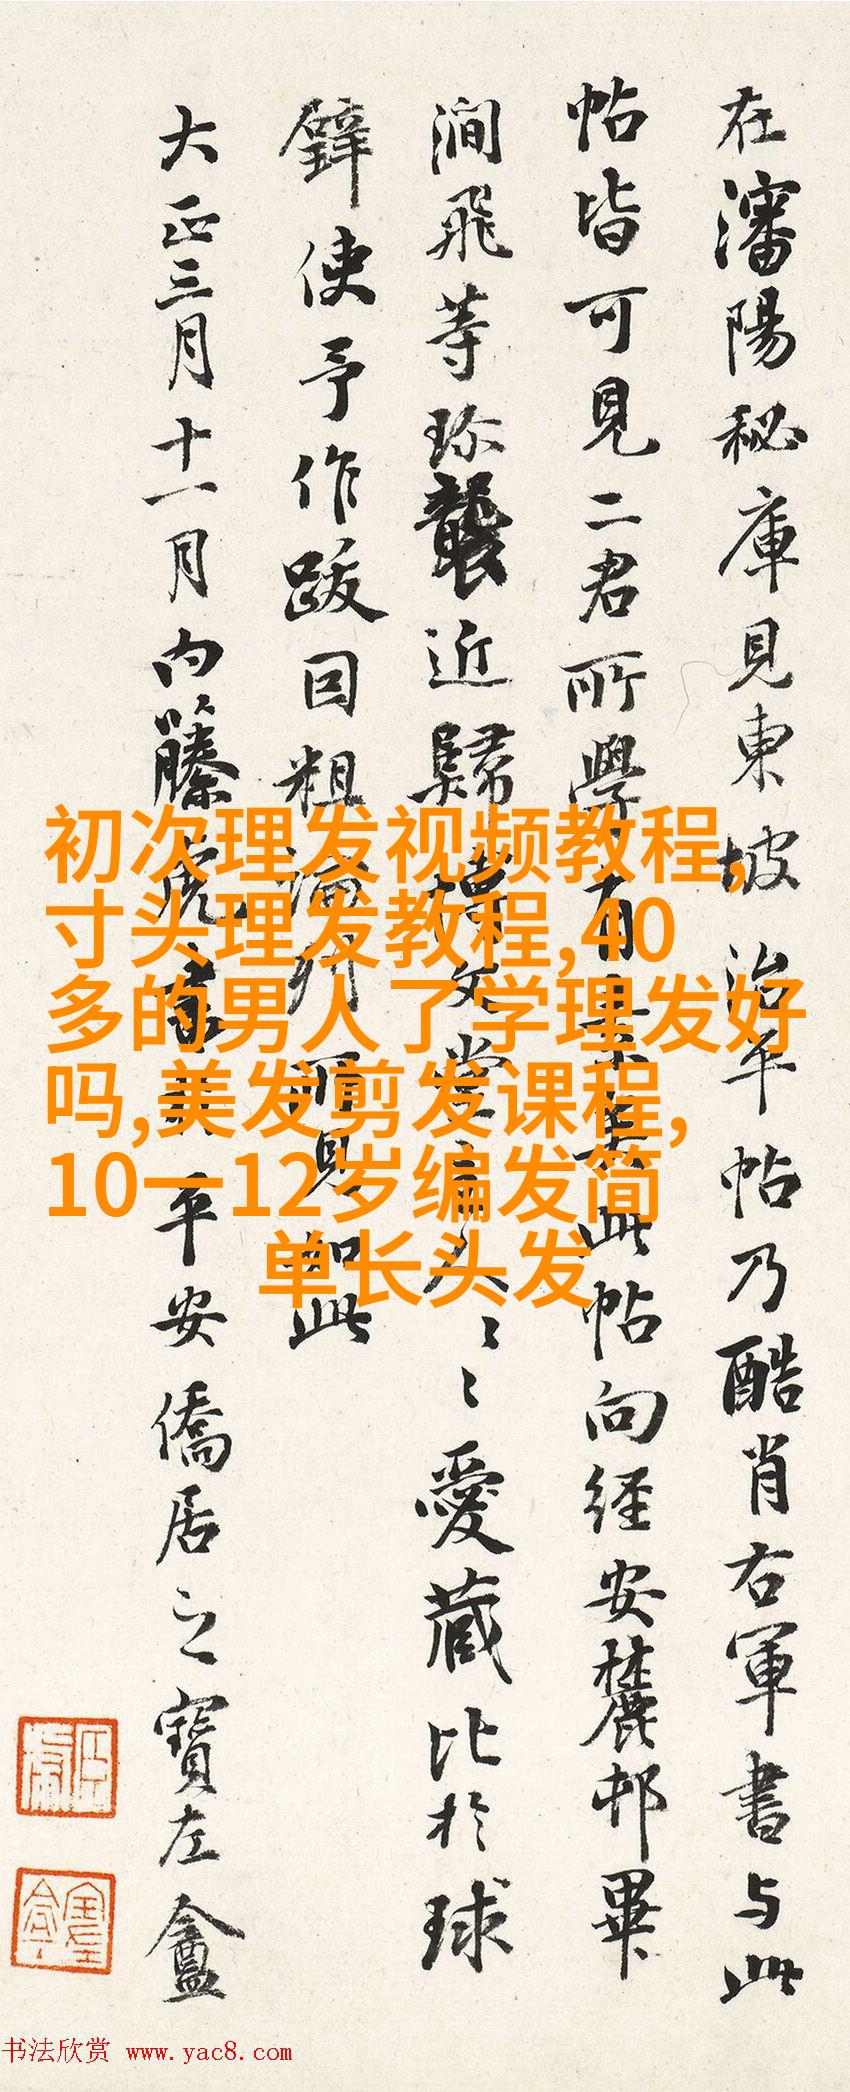 在瀋陽秘庫見東坡治平帖乃酷肖右軍書与此
帖皆可見二君所學有此帖向經安麓邨畢
澗飛等珎襲近歸愛藏比於球
鐸使予作跋因粗論所見如此
大正三月十一月內藤虎書平安僑居之寶左盦
初次理发视频教程,
寸头理发教程,40
多的男人了学理发好
吗,美发剪发课程,
10一12岁编发简
单长头发
书法欣赏 www.yac8.com